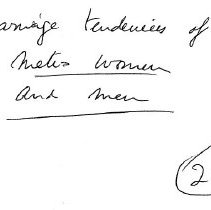 arriage tendencies of
Metis women
and men
2